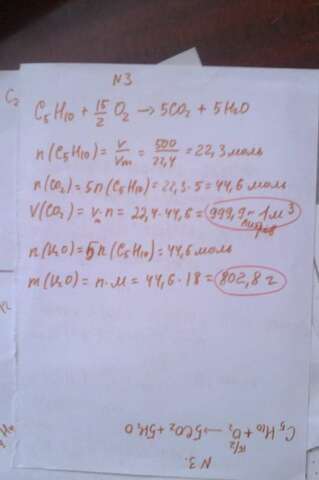 N3
C₂
C₅H₁₀ + 15/2 O₂ → 5CO₂ + 5H₂O
n(C₅H₁₀) = V/Vm = 500/22,4 = 22,3 моль
n(CO₂) = 5n(C₅H₁₀) = 22,3·5 = 44,6 моль
V(CO₂) = V·n = 22,4·44,6 = 999,9 1м³
n(H₂O) = 5n(C₅H₁₀) = 44,6 моль
m(H₂O) = n·M = 44,6·18 = 802,8 г
C₅H₁₀ + 15/2 O₂ → 5CO₂ + 5H₂O
N3.